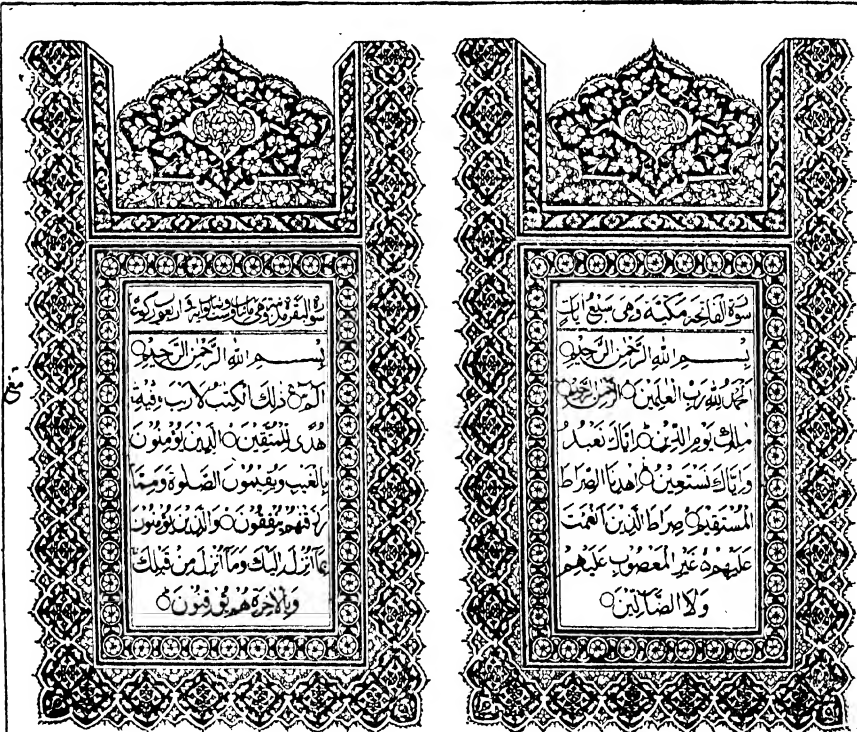 سورة الفاتحة مكية وهي سبع ايات
بِسْمِ اللهِ الرَّحْمٰنِ الرَّحِيْمِ
اَلْحَمْدُ لِلّٰهِ رَبِّ الْعٰلَمِيْنَ الرَّحْمٰنِ الرَّحِيْمِ
مٰلِكِ يَوْمِ الدِّيْنِ اِيَّاكَ نَعْبُدُ
وَاِيَّاكَ نَسْتَعِيْنُ اِهْدِنَا الصِّرَاطَ
الْمُسْتَقِيْمَ صِرَاطَ الَّذِيْنَ اَنْعَمْتَ
عَلَيْهِمْ غَيْرِ الْمَغْضُوْبِ عَلَيْهِمْ
وَلَا الضَّآلِّيْنَ
سورة البقرة
بِسْمِ اللهِ الرَّحْمٰنِ الرَّحِيْمِ
الٓمّٓ ذٰلِكَ الْكِتٰبُ لَا رَيْبَ فِيْهِ
هُدًى لِّلْمُتَّقِيْنَ الَّذِيْنَ يُؤْمِنُوْنَ
بِالْغَيْبِ وَيُقِيْمُوْنَ الصَّلٰوةَ وَمِمَّا
رَزَقْنٰهُمْ يُنْفِقُوْنَ وَالَّذِيْنَ يُؤْمِنُوْنَ
بِمَآ اُنْزِلَ اِلَيْكَ وَمَآ اُنْزِلَ مِنْ قَبْلِكَ
وَبِالْاٰخِرَةِ هُمْ يُوْقِنُوْنَ